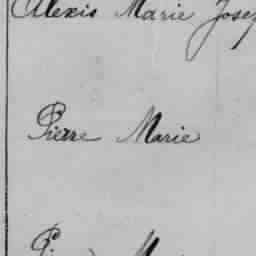 Alexis Marie Jose
Pierre Marie